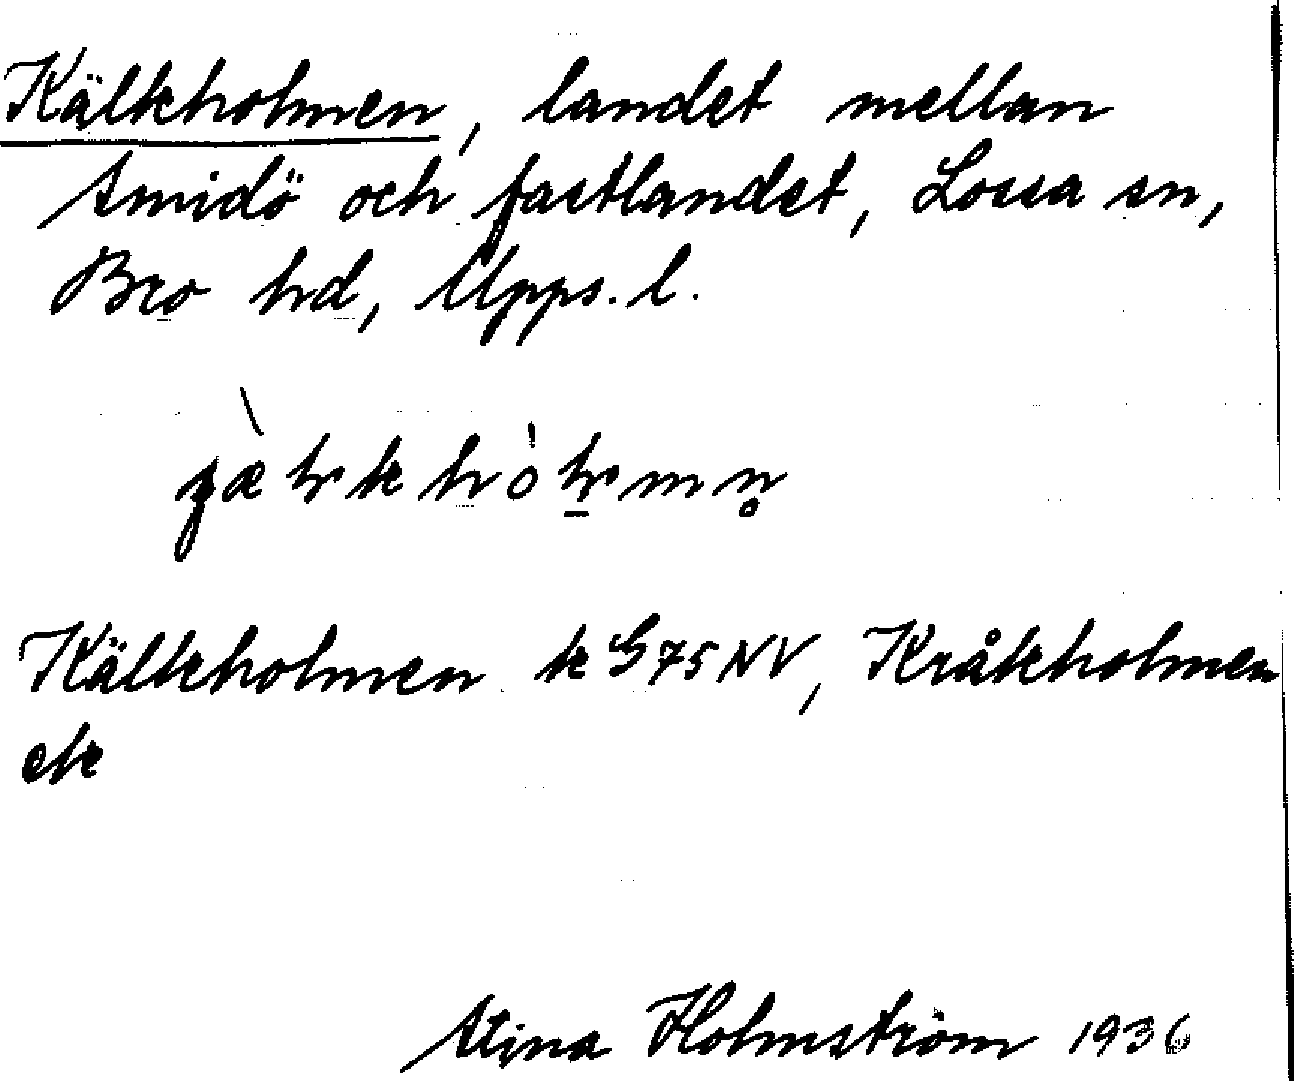 Kälkholmen, landet mellan
Smidö och fastlandet, Lossa sn,
Bro hd, Upps. l.
Kälkholmen k G 75 NV, Kråkholmen
ek
Stina Holmström 1936